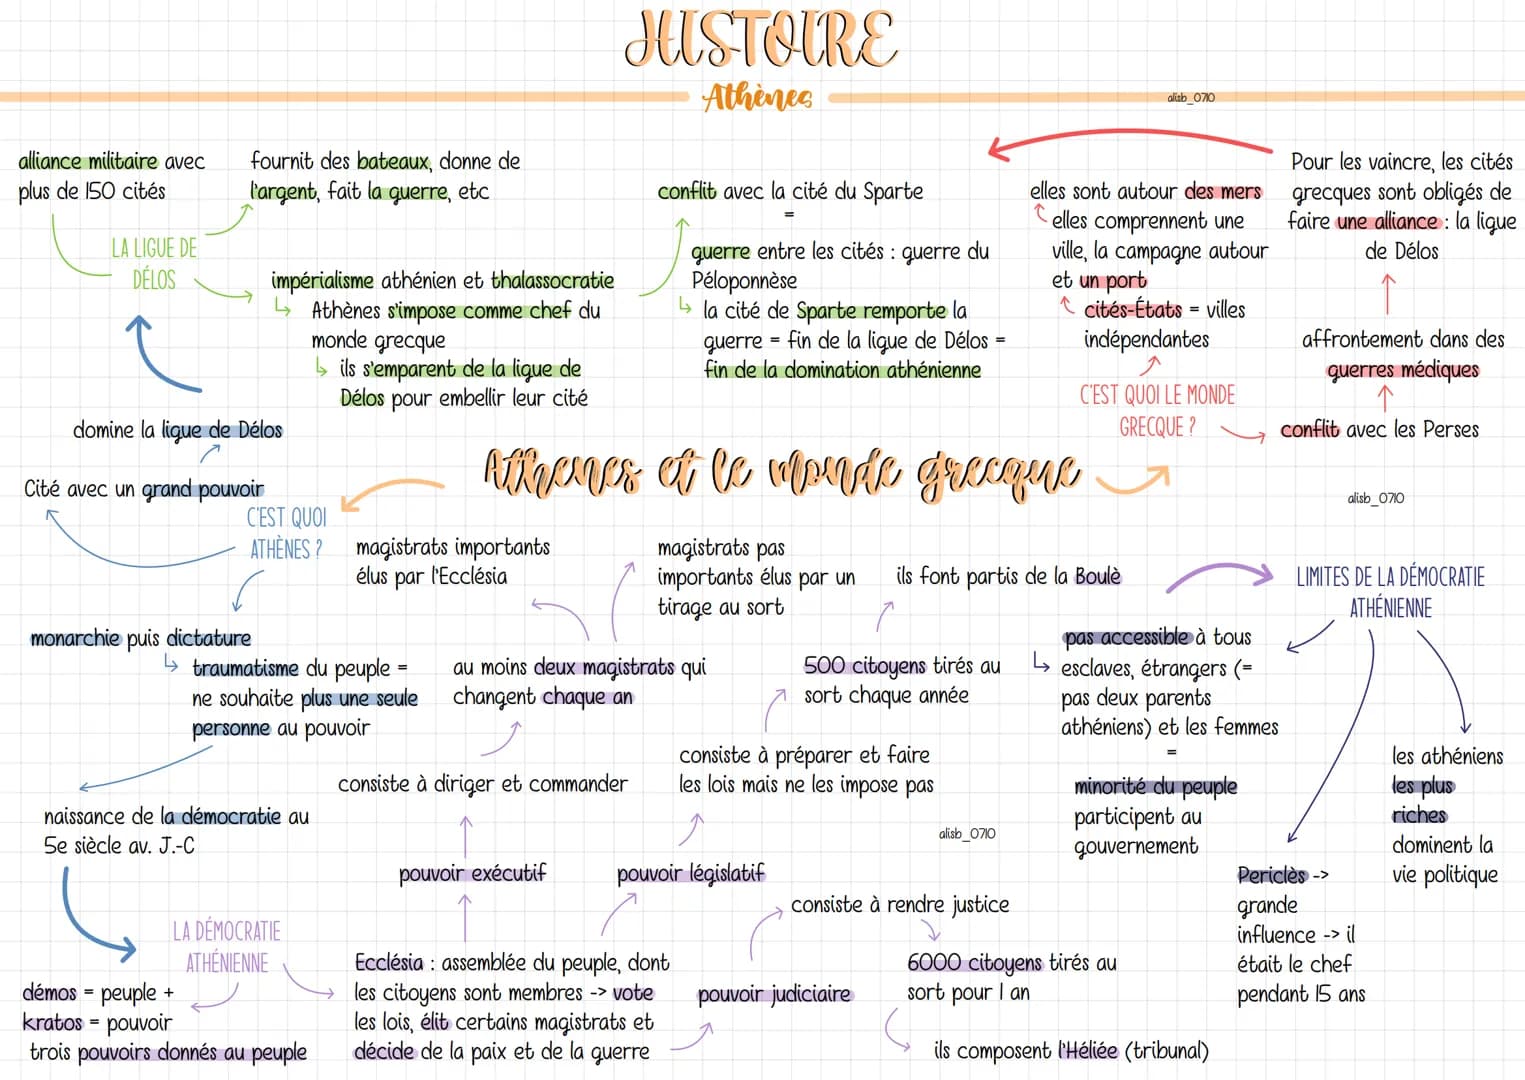 HISTOIRE
Athènes
alisb_0710
alliance militaire avec
plus de 150 cités
fournit des bateaux, donne de
l'argent, fait la guerre, etc
LA LIGUE DE
DÉLOS
impérialisme athénien et thalassocratie
Athènes s'impose comme chef du
monde grecque
ils s'emparent de la ligue de
Délos pour embellir leur cité
conflit avec la cité du Sparte
=
guerre entre les cités : guerre du
Péloponnèse
la cité de Sparte remporte la
guerre = fin de la ligue de Délos =
fin de la domination athénienne
elles sont autour des mers
elles comprennent une
ville, la campagne autour
et un port
cités-États = villes
indépendantes
C'EST QUOI LE MONDE
GRECQUE ?
Pour les vaincre, les cités
grecques sont obligés de
faire une alliance : la ligue
de Délos
affrontement dans des
guerres médiques
conflit avec les Perses
Athènes et le monde grecque
alisb_0710
domine la ligue de Délos
Cité avec un grand pouvoir
C'EST QUOI
ATHÈNES ?
monarchie puis dictature
traumatisme du peuple =
ne souhaite plus une seule
personne au pouvoir
naissance de la démocratie au
5e siècle av. J.-C
LA DÉMOCRATIE
ATHÉNIENNE
démos = peuple +
kratos = pouvoir
trois pouvoirs donnés au peuple
magistrats importants
élus par l'Ecclésia
magistrats pas
importants élus par un
tirage au sort
au moins deux magistrats qui
changent chaque an
consiste à diriger et commander
pouvoir exécutif
Ecclésia : assemblée du peuple, dont
les citoyens sont membres -> vote
les lois, élit certains magistrats et
décide de la paix et de la guerre
ils font partis de la Boulè
500 citoyens tirés au
sort chaque année
consiste à préparer et faire
les lois mais ne les impose pas
pouvoir législatif
alisb_0710
consiste à rendre justice
pouvoir judiciaire
6000 citoyens tirés au
sort pour 1 an
ils composent l'Héliée (tribunal)
LIMITES DE LA DÉMOCRATIE
ATHÉNIENNE
pas accessible à tous
esclaves, étrangers (=
pas deux parents
athéniens) et les femmes
=
minorité du peuple
participent au
gouvernement
Periclès ->
grande
influence -> il
était le chef
pendant 15 ans
les athéniens
les plus
riches
dominent la
vie politique